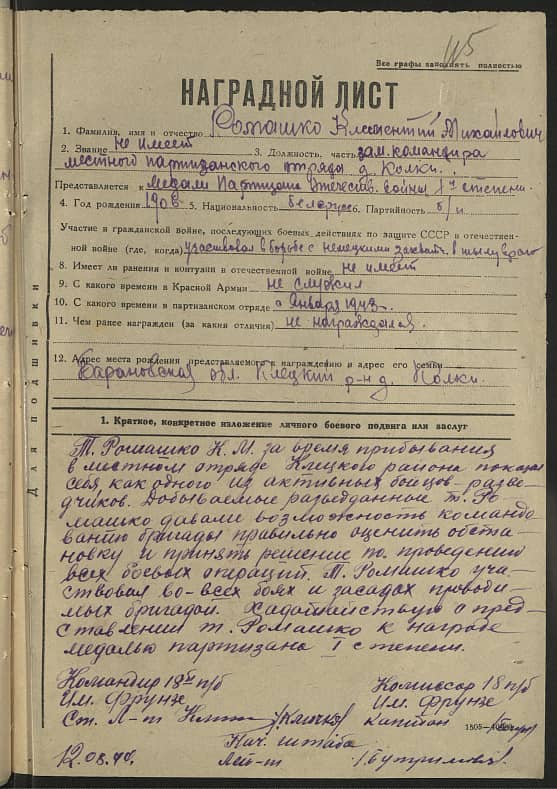 115
Все графы заполнять полностью
НАГРАДНОЙ ЛИСТ
1. Фамилия, имя и отчество Ромашко Клементий Михайлович
2. Звание не имеет 3. Должность, часть зам. командира
местного партизанского отряда д. Колки.
Представляется к медали Партизана Отечеств. войны I й степени.
4. Год рождения 1908 5. Национальность белорус 6. Партийность б/п
Участие в гражданской войне, последующих боевых действиях по защите СССР и отечествен-
ной войне (где, когда) участвовал в борьбе с немецкими захват. в тылу врага
8. Имеет ли ранения и контузии в отечественной войне не имеет
9. С какого времени в Красной Армии не служил
10. С какого времени в партизанском отряде с Января 1943.
11. Чем ранее награжден (за какия отличия) не награждался.
12. Адрес места рождения представляемого к награждению и адрес его семьи
Барановская обл. Клецкий р-н д. Колки.
Для подшивки
1. Краткое, конкретное изложение личного боевого подвига или заслуг
Т. Ромашко К. М. за время прибывания
в местном отряде Клецкого района показал
себя как одного из активных бойцов-развед-
чиков. Добываемые разведданные т. Ро-
машко давали возможность командо-
ванию бригады правильно оценить обста-
новку и принять решение по проведению
всех боевых операций. Т. Ромашко уча-
ствовал во-всех боях и засадах проводи-
мых бригадой. Хадатайствую о пред-
ставлении т. Ромашко к награде
медалью партизана I степени.
Командир 18й п/б
Им. Фрунзе
Ст. Л-т /Клична/
Комиссар 18 п/б
Им. Фрунзе
Капитан
1505—
Нач. штаба
Лей-т
12.08.44.